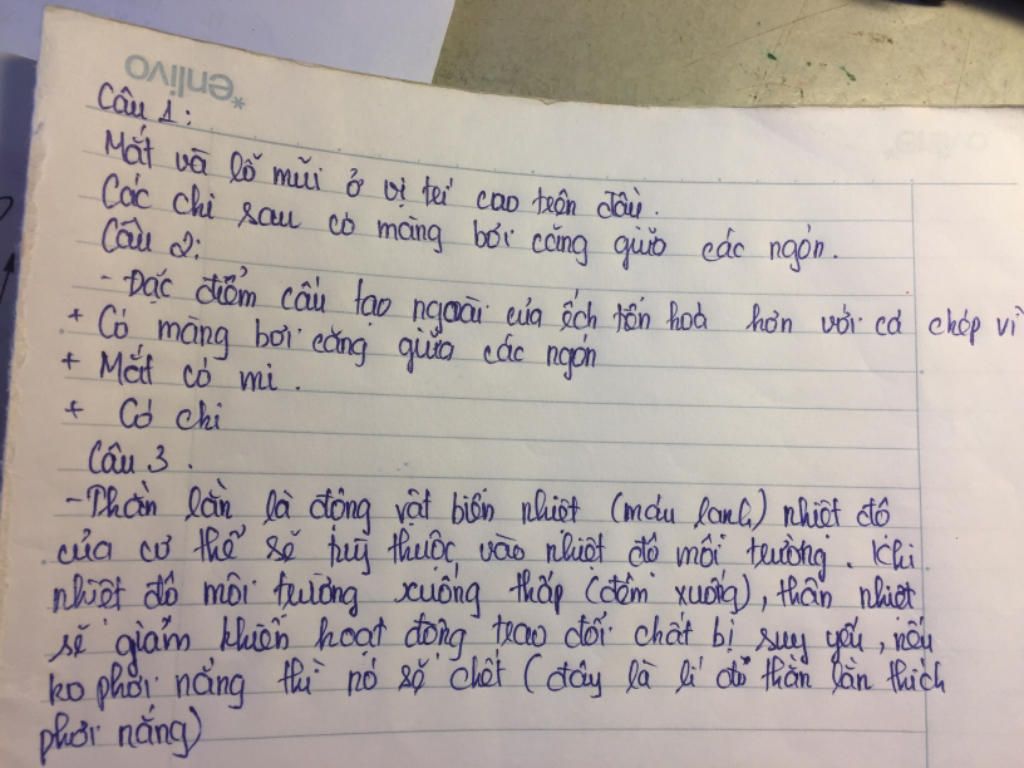 enlivo
Câu 1:
Mắt và lỗ mũi ở vị trí cao trên đầu.
Các chi sau có màng bơi căng giữa các ngón.
Câu 2:
- Đặc điểm cấu tạo ngoài của ếch tiến hoá hơn với cá chép vì
+ Có màng bơi căng giữa các ngón
+ Mắt có mi.
+ Có chi
Câu 3.
- Thằn lằn là động vật biến nhiệt (máu lạnh) nhiệt độ
của cơ thể sẽ tuỳ thuộc vào nhiệt độ môi trường. Khi
nhiệt độ môi trường xuống thấp (đêm xuống), thân nhiệt
sẽ giảm khiến hoạt động trao đổi chất bị suy yếu, nếu
ko phơi nắng thì nó sẽ chết (đây là lí do thằn lằn thích
phơi nắng)